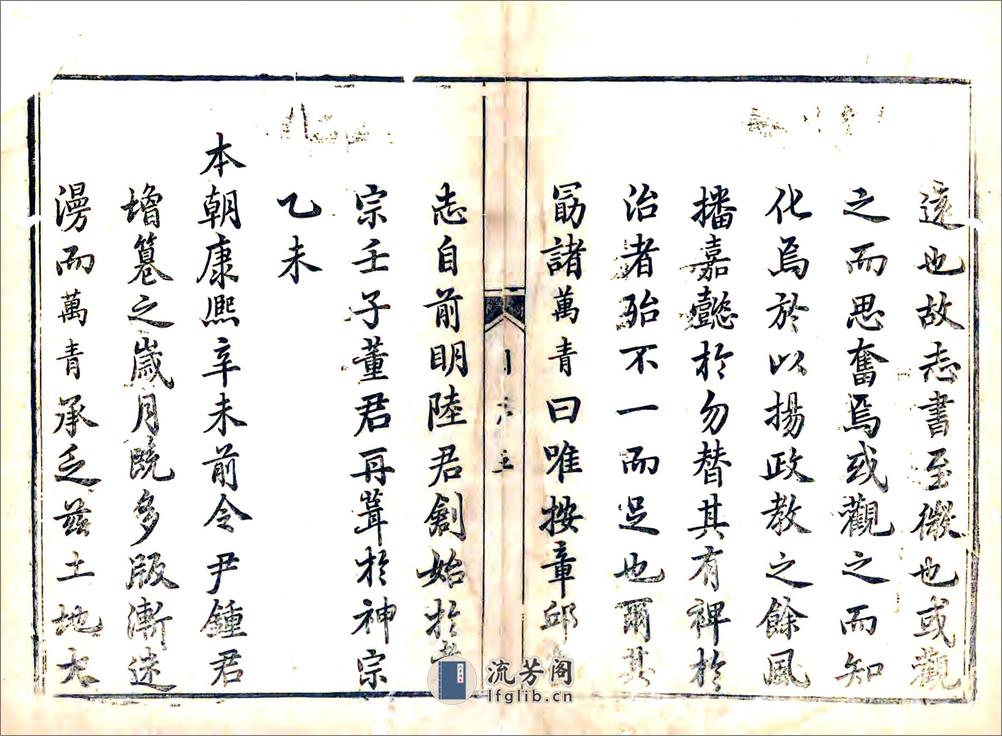 遠也故志書至微也或觀
之而思奮焉或觀之而知
化焉於以揚政教之餘風
播嘉懿於勿替其有裨於
治者殆不一而足也爾其
勗諸萬青曰唯按章邱
志自前明陸君創始於
宗壬子董君再葺於神宗
乙未
本朝康熙辛未前令尹鍾君
增纂之歲月旣多版漸迷
漫而萬青承乏茲土地大
流芳阁
lfglib.cn